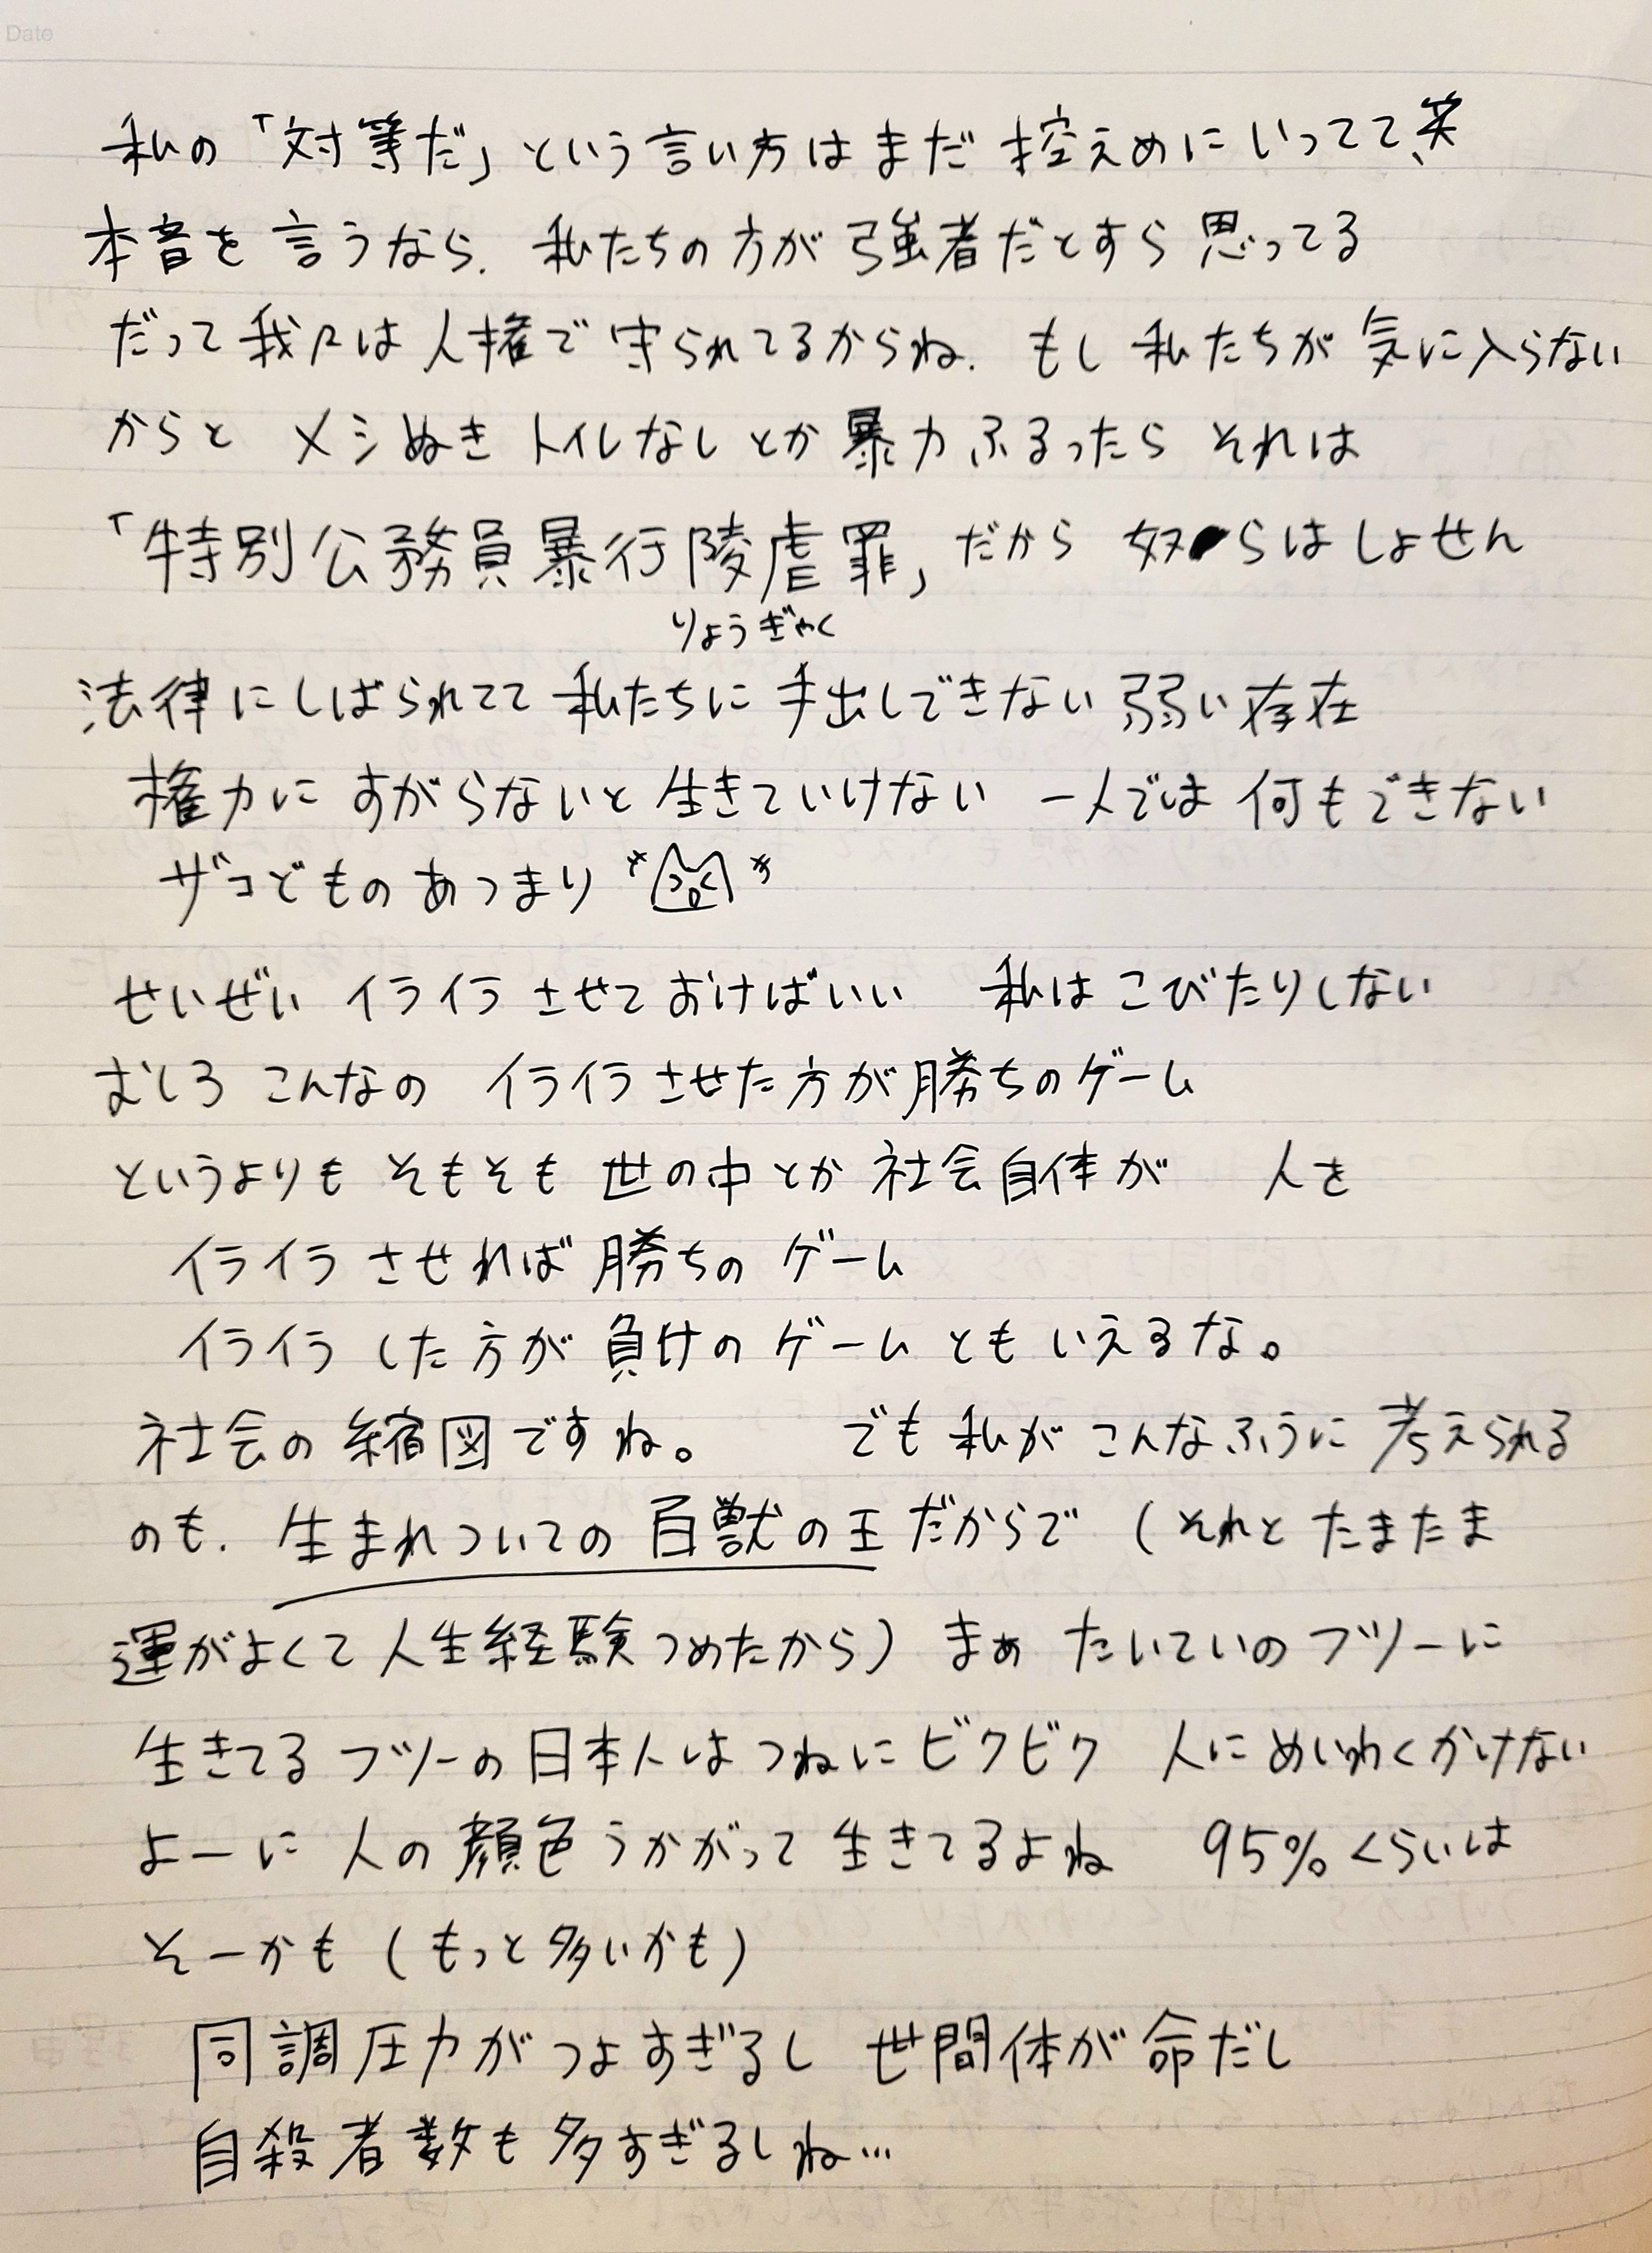 Date
私の「対等だ」という言い方はまだ控えめにいってて、笑
本音を言うなら、私たちの方が強者だとすら思ってる
だって我々は人権で守られてるからね、もし私たちが気に入らない
からと メシぬき トイレなしとか暴力ふるったら それは
「特別公務員暴行陵虐罪」だから 奴らはしょせん
りょうぎゃく
法律にしばられてて私たちに手出しできない弱い存在
権力にすがらないと生きていけない 一人では何もできない
ザコどものあつまり
せいぜいイライラさせておけばいい 私はこびたりしない
むしろこんなの イライラさせた方が勝ちのゲーム
というよりもそもそも世の中とか社会自体が 人を
イライラさせれば勝ちのゲーム
イライラした方が負けのゲームともいえるな。
社会の縮図ですね。 でも私がこんなふうに考えられる
のも、生まれついての百獣の王だからで(それとたまたま
運がよくて人生経験つめたから)まぁ たいていのフツーに
生きてるフツーの日本人はつねにビクビク 人にめいわくかけない
よーに人の顔色うかがって生きてるよね 95%くらいは
そーかも(もっと多いかも)
同調圧力がつよすぎるし 世間体が命だし
自殺者数も多すぎるしね…